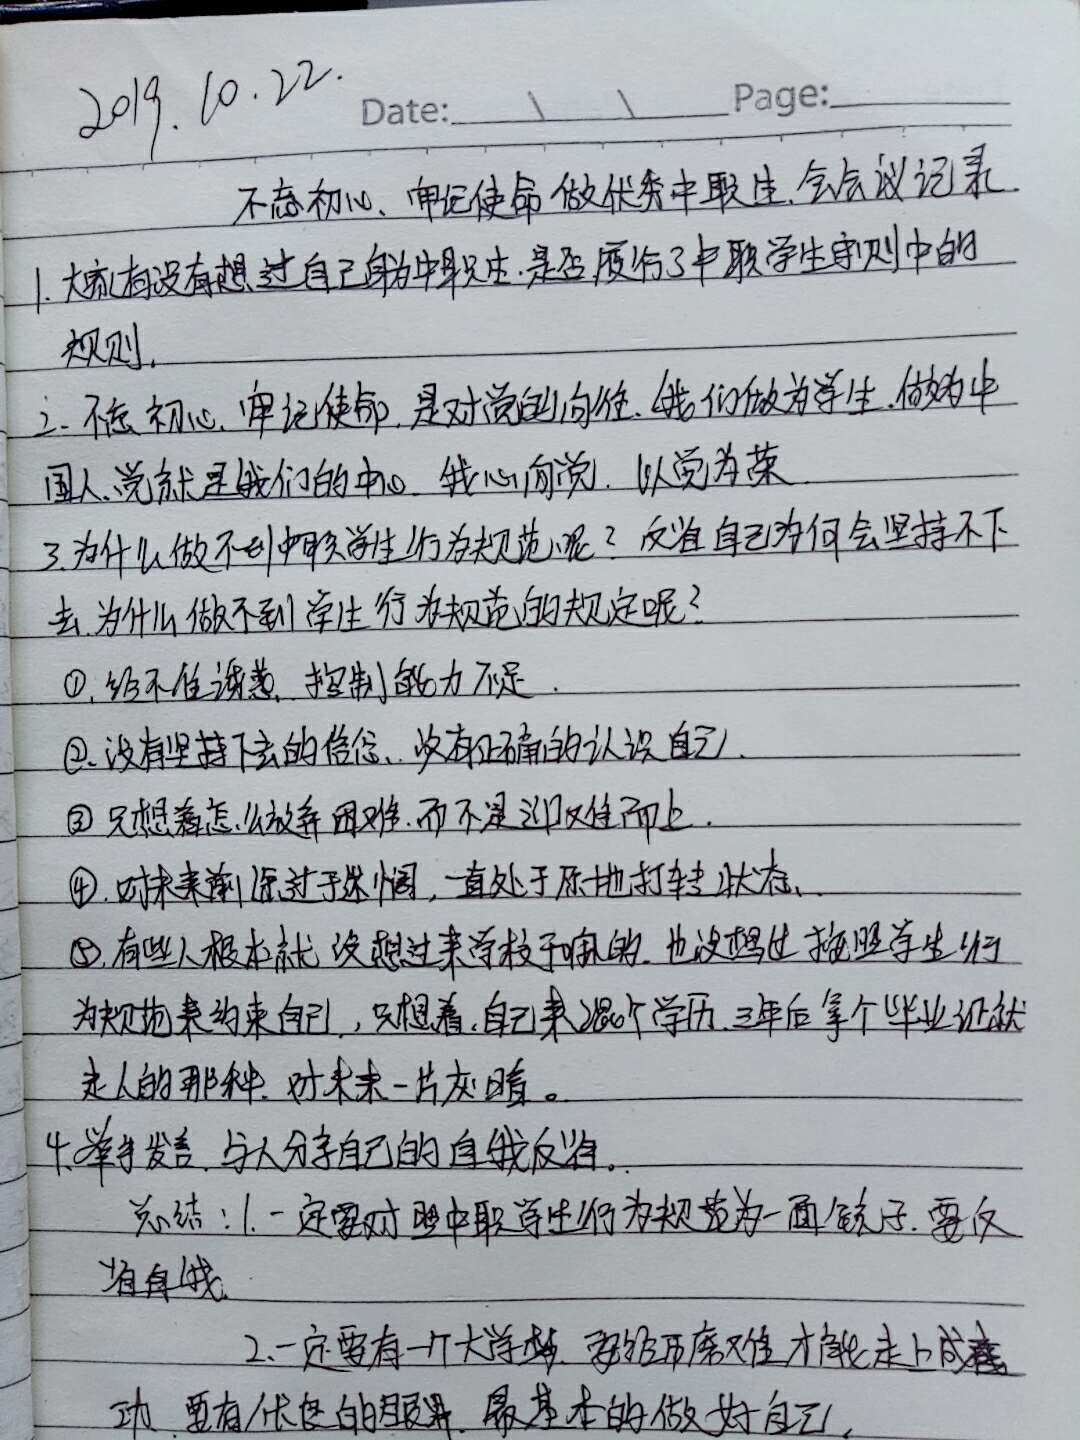 2019.10.22.
Date: \ \ Page:
不忘初心、牢记使命 做优秀中职生.会会议记录.
1.大家有没有想过自己身为中职生.是否履行了中职学生守则中的
规则.
2.不忘初心、牢记使命.是对党的向往.我们做为学生.做为中
国人.党就是我们的中心.我心向党.以党为荣
3.为什么做不到中职学生行为规范呢?反省自己为何会坚持不下
去.为什么做不到学生行为规范的规定呢?
①.经不住诱惑、控制能力不足.
②.没有坚持下去的信念、没有正确的认识自己.
③只想着怎么放弃困难.而不是迎难而上.
④.对未来前途过于迷惘,一直处于原地打转状态、
⑤.有些人根本就没想过来学校干嘛的.也没想过按照学生行
为规范来约束自己,只想着.自己来混个学历.三年后拿个毕业证就
走人的那种.对未来一片灰暗。
4.举手发言.与人分享自己的自我反省。
总结:1.一定要对照中职学生行为规范为一面镜子.要反
省自我.
2.一定要有一个大学梦.要经历磨难才能走上成
功.要有 的眼界.最基本的做好自己.